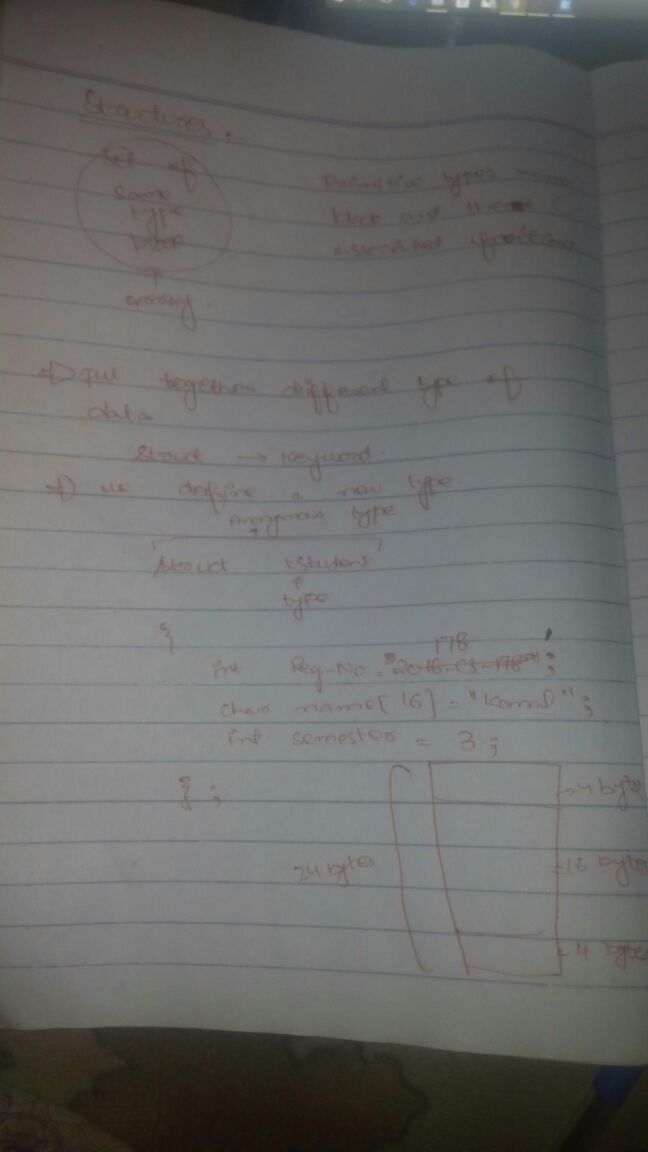 Structures.
Set of
Same
type
data
array.
Primitive types
associated
→ put together different type of
data
Struct → Keyword.
→ we define a new type
Anonymous type
Struct tstudent
type
{
178
int Reg-No = "2016-CS-178";
char name[16] = "Komal";
int semester = 3;
};
→ 4 byte
24 bytes
16 byte
4 byte